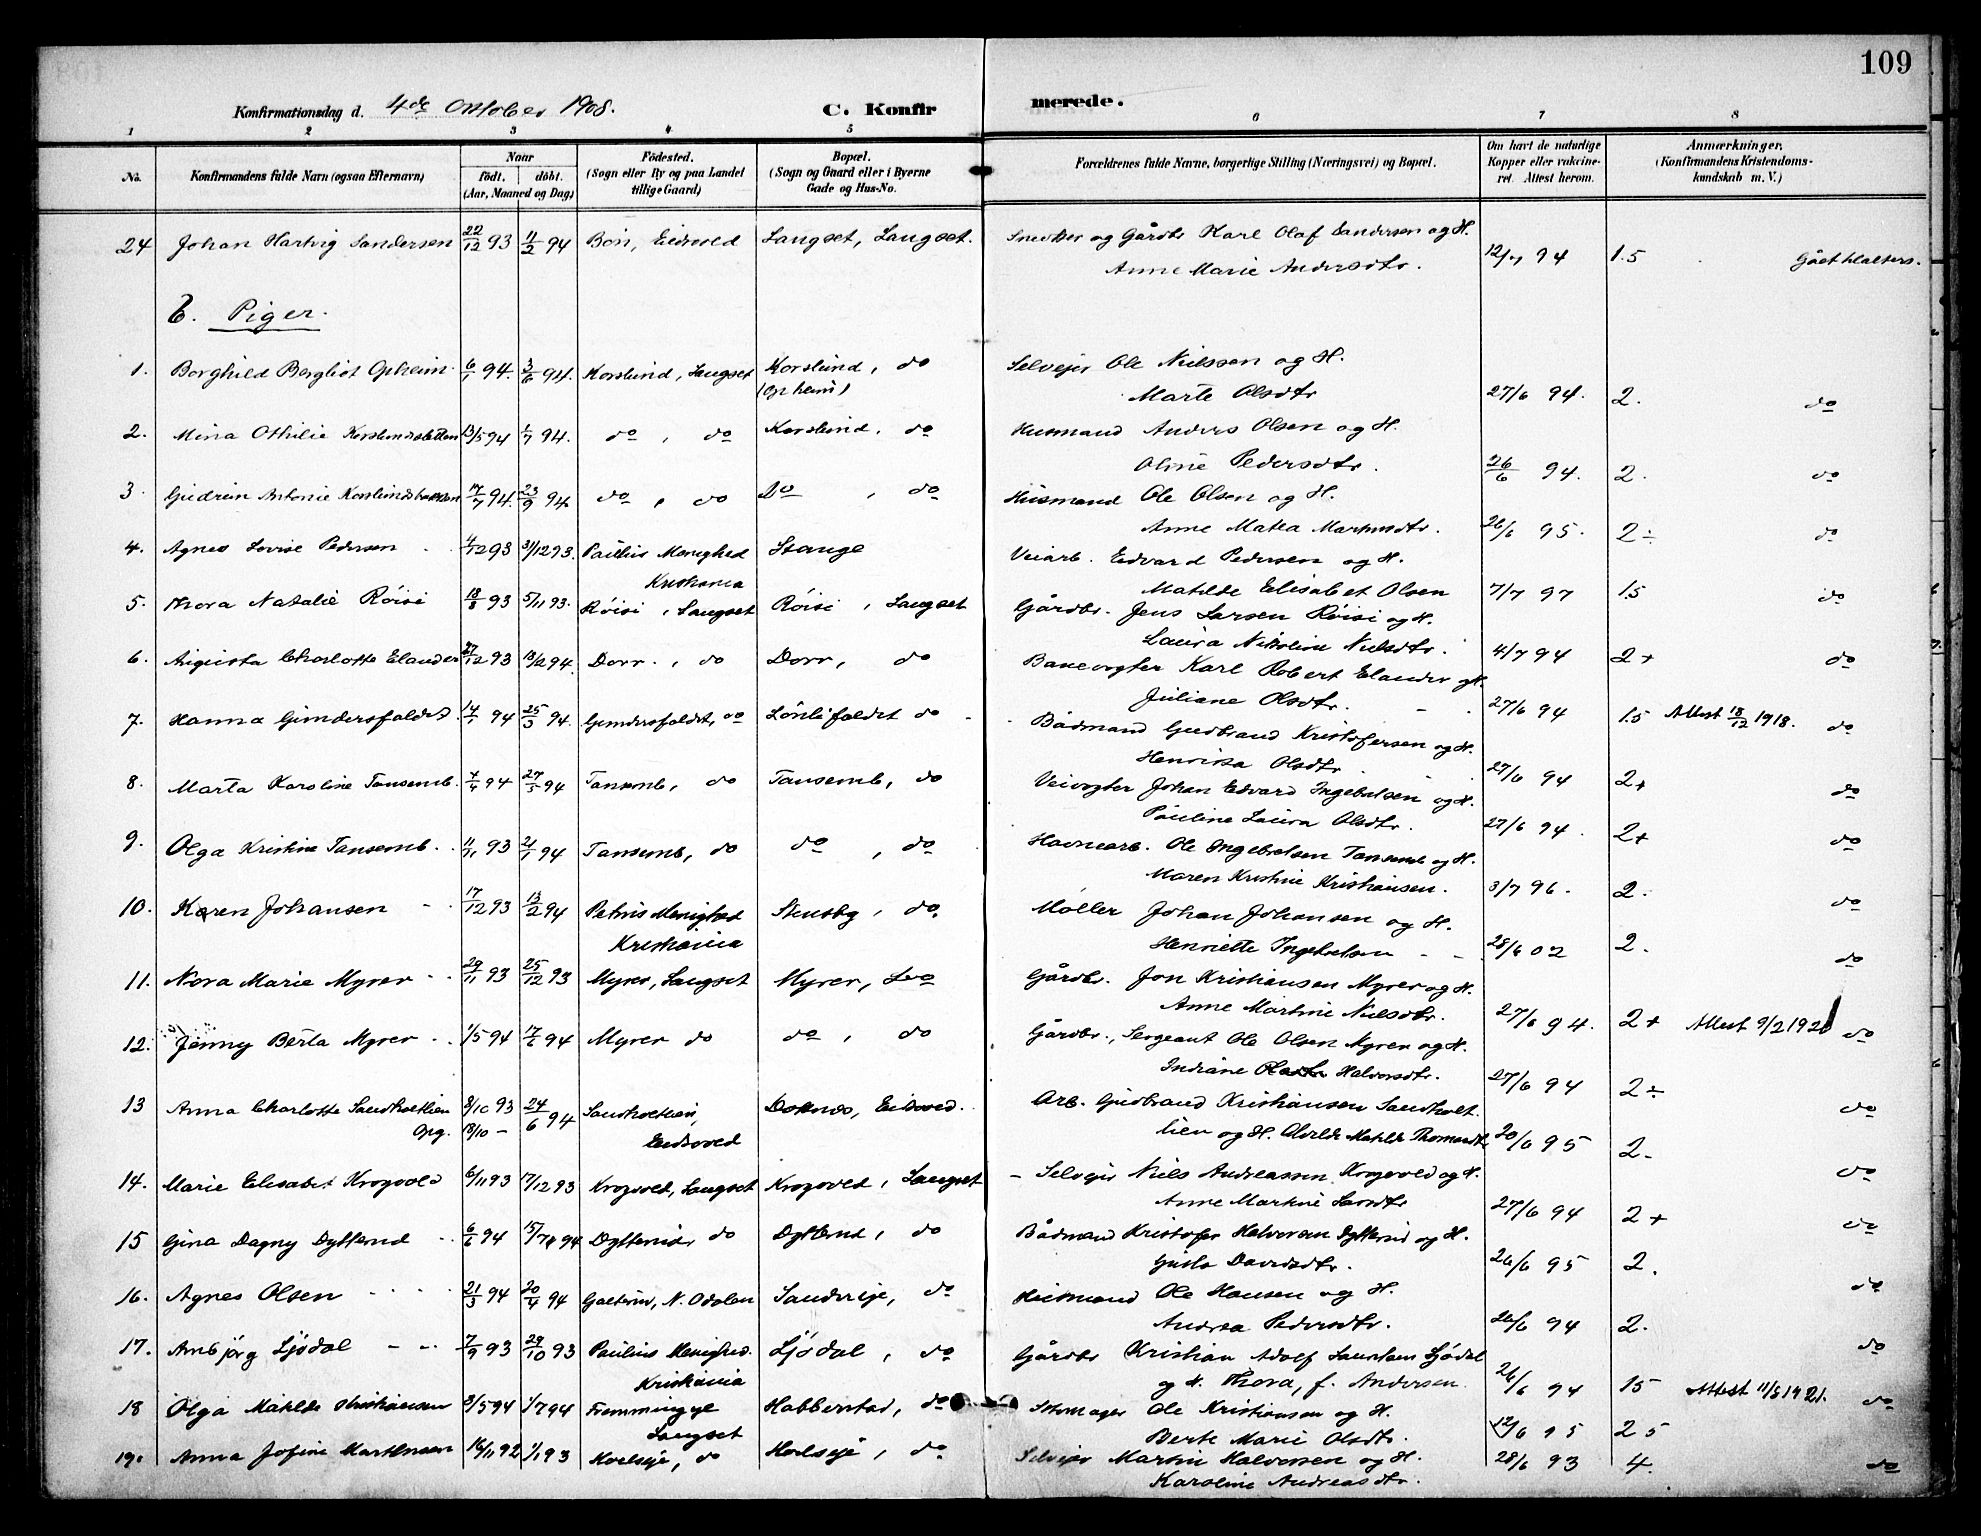 109
Konfirmationsdag d. 4de Oktober 1908.
C. Konfirmerede.
1 2 3 4 5 6 7 8
No.
Konfirmandens fulde Navn (ogsaa Efternavn)
Naar
födt. döbt.
(Aar, Maaned og Dag)
Födested.
(Sogn eller By og paa Landet
tillige Gaard)
Bopæl.
(Sogn og Gaard eller i Byerne
Gade og Hus-No.
Forældrenes fulde Navne, borgerlige Stilling (Næringsvei) og Bopæl.
Om havt de naturlige
Kopper eller vakcine-
ret. Attest herom.
Anmærkninger,
(Konfirmandens Kristendoms-
kundskab m. V.)
24 Johan Hartvig Sandersen 22/12 93 11/2 94 Bön, Eidsvold Langset, Langset. Snedker og Gårdbr Karl Olaf Sandersen og H.
Anne Marie Andersdtr. 12/7 94 1.5 Gået til alters.
Piger.
1. Borghild Bergliot Opheim 6/1 94. 3/6 94. Korslund, Langset Korslund, do Selveier Ole Nielssen og H.
(Opheim)
Marte Olsdtr 27/6 94. 2. do
2. Mina Othilie Korslundsletten 13/5 94 1/7 94. do, do Korslund, do Husmand Anders Olsen og H.
Oline Pedersdtr. 26/6 94. 2. do
3. Gudrun Antonie 17/7 94. 23/9 94 do, do Do, do Husmand Ole Olsen og H.
Anne Matea Martinsdtr. 26/6 95. 2÷ do
4. Agnes Lovise Pedersen 4/12 93 31/12 93. Paulus Menighed Stange Veiarb. Edvard Pedersen og H.
Kristiania
Matilde Elisabet Olsen 7/7 97 1.5 do
5. Thora Natalie Röisi 18/8 93 5/11 93. Röisi, Langset Röisi, Langset Gårdbr. Jens Larsen Röisi og H.
Laura Nikoline Nielsdtr. 4/7 94 2+ do
6. Augusta Charlotte Elander 27/12 93 18/2 94. Dorr, do Dorr, do Banevogter Karl Robert Elander og H.
Juliane Olsdtr. 27/6 94 1.5 Attest 18/12 1918. do
7. Hanna Gundersfaldet 14/1 94 25/3 94. Gundersfaldet, do Lönlifaldet do Bådmand Gudbrand Kristofersen og H.
Henrika Olsdtr 27/6 94 2+ do
8. Marta Karoline Tansemb. 7/4 94 27/5 94 Tansemb, do Tansemb, do Veivogter Johan Edvard Ingebretsen og H.
Pauline Laura Olsdtr. 27/6 94. 2+ do
9. Olga Kristine Tansemb. 11/11 93 21/1 94 Tansemb, do do, do Havnearb. Ole Ingebretsen Tansemb og H.
Maren Kristine Kristiansen. 3/7 96. 2. do
10. Karen Johansen 17/12 93 18/2 94 Petrus Menighed Stensby, do. Möller Johan Johansen og H.
Kristiania
Henriette Ingebretsen 28/6 02 2. do
11. Nora Marie Myrer 29/11 93 25/12 93 Myrer, Langset Myrer, do Gårdbr. Jon Kristiansen Myrer og H.
Anne Martine Nielsdtr. 27/6 94. 2+ Attest 9/2 1920 do
12. Jenny Berta Myrer 1/5 94 17/6 94 Myrer do do, do Gårdbr., Sergeant Ole Olsen Myrer og H.
Indiane Halvorsdtr. 27/6 94 2÷ do
13 Anna Charlotte Sandholtlien 8/10 93 24/6 94 Sandholtlien, Doknæs, Eidsvold. Arb. Gudbrand Kristiansen Sandholt
Opg. 18/10 – Eidsvold
lien og H. Matilde Thomasdtr 20/6 95 2. do
14. Marie Elisabet Krogvold 6/11 93 17/12 93 Krogvold, Langset Krogvold, Langset Selveier Niels Andreassen Krogvold og H.
Anne Martine Larsdtr 27/6 94 2+ do
15 Gina Dagny Dytterud 6/6 94 15/7 94 Dytterud, do Dytterud, do Bådmand Kristofer Halvorsen Dytterud og H.
Gusta Davidsdtr. 26/6 95 2. do
16. Agnes Olsen 21/3 94 20/4 94 Gaterud, N. Odalen Sanderseje, do Husmand Ole Hansen og H.
Andrea Pedersdtr. 26/6 94 2. do
17. Arnbjörg Ljödal 7/9 93 29/10 93 Paulus Menighed. Ljödal, do Gårdbr Kristian Adolf Lauritsen Ljödal
Kristiania
og H. Thora, f. Andersen 26/6 94 15 Attest 11/5 1921. do
18 Olga Matilde Kristiansen 3/5 94 1/7 94 Fremmingeje Habberstad, do Skomager Ole Kristiansen og H.
Langset
Berte Marie Olsdtr. 12/6 95 25
19. Anna Jofine Martinsen 16/11 92 1/1 93 Hoelseje, do Hoelseje, do Selveier Martin Halvorsen og H.
Karoline Andreasdtr. 28/6 93 4. do